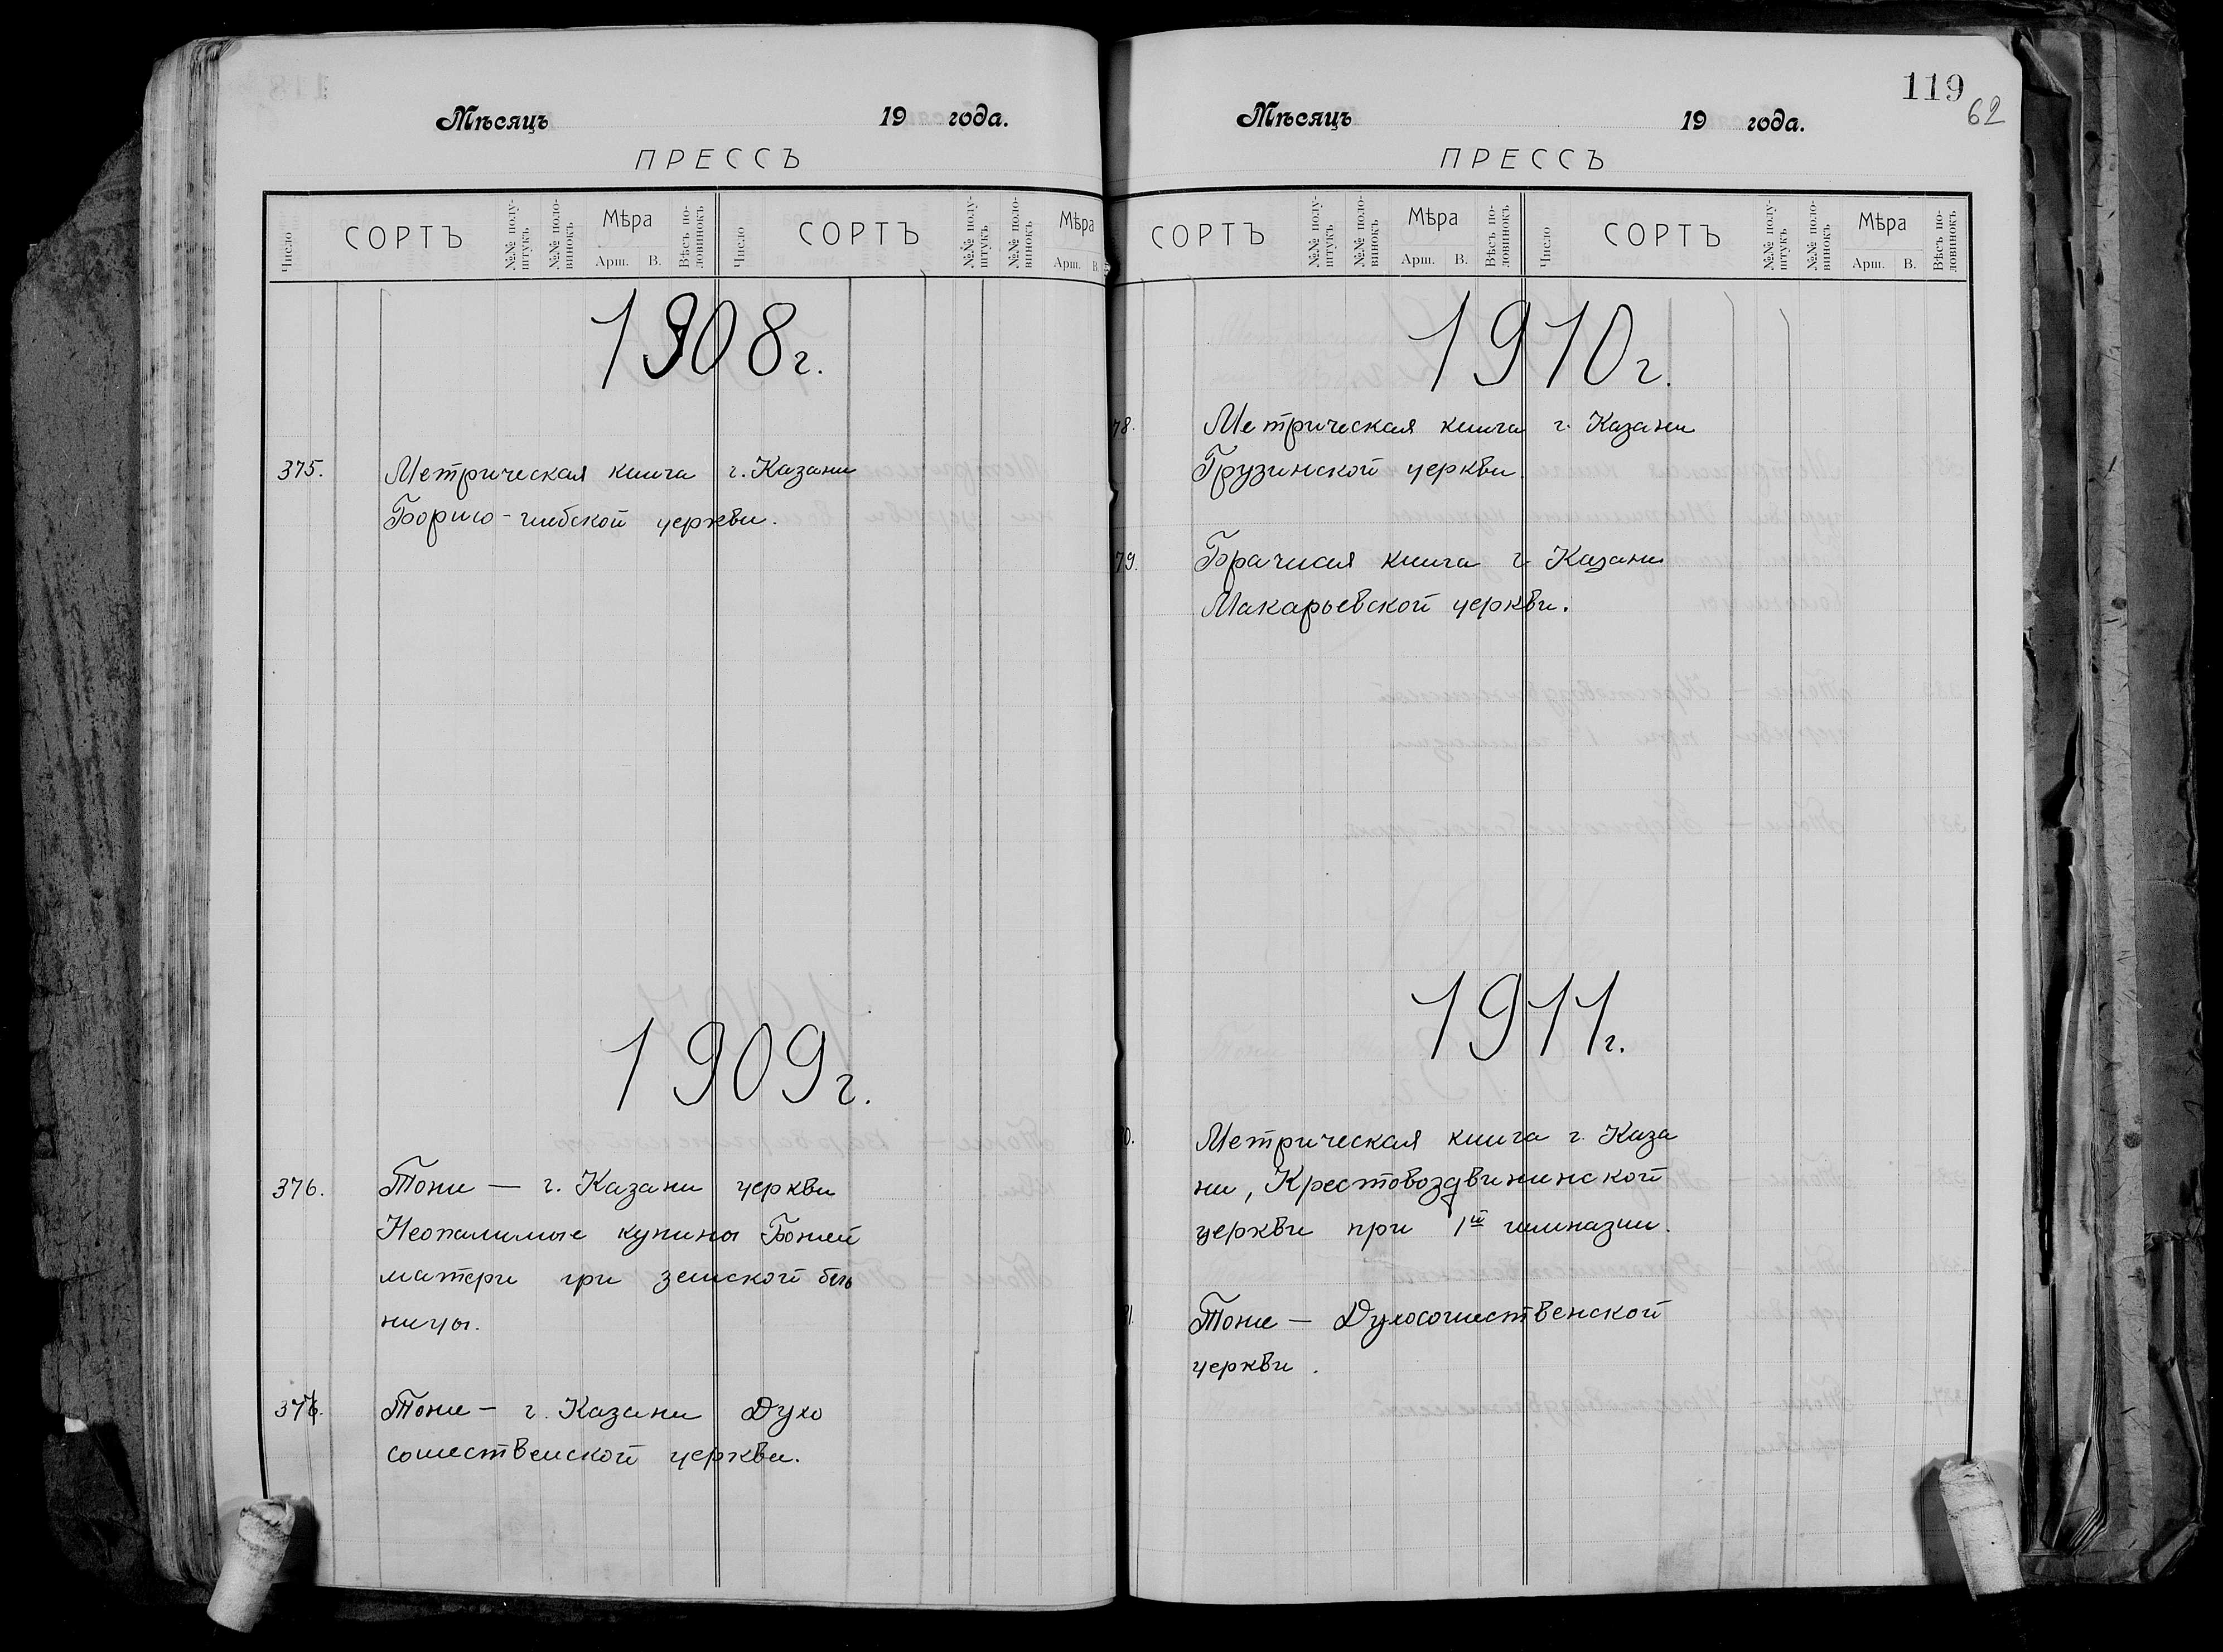 Мѣсяцъ 19 года.
ПРЕССЪ
Число СОРТЪ №№ полуштукъ №№ половинокъ Мѣра Арш. В. Вѣсъ половинокъ Число СОРТЪ №№ полуштукъ №№ половинокъ Мѣра Арш. В.
1908 г.
375. Метрическая книга г. Казани
Борисо-глебской церкви.
1909 г.
376. Тоже — г. Казани церкви
Неопалимые купины Божией
матери при земской боль
ницы.
377. Тоже — г. Казани Духо
сошественской церкви.
119
62
Мѣсяцъ 19 года.
ПРЕССЪ
СОРТЪ №№ полуштукъ №№ половинокъ Мѣра Арш. В. Вѣсъ половинокъ Число СОРТЪ №№ полуштукъ №№ половинокъ Мѣра Арш. В. Вѣсъ половинокъ
1910 г.
78. Метрическая книга г. Казани
Грузинской церкви.
79. Брачная книга г. Казани
Макарьевской церкви.
1911 г.
0. Метрическая книга г. Каза
ни, Крестовоздвиженской
церкви при 1й гимназии.
81. Тоже — Духосошественской
церкви.